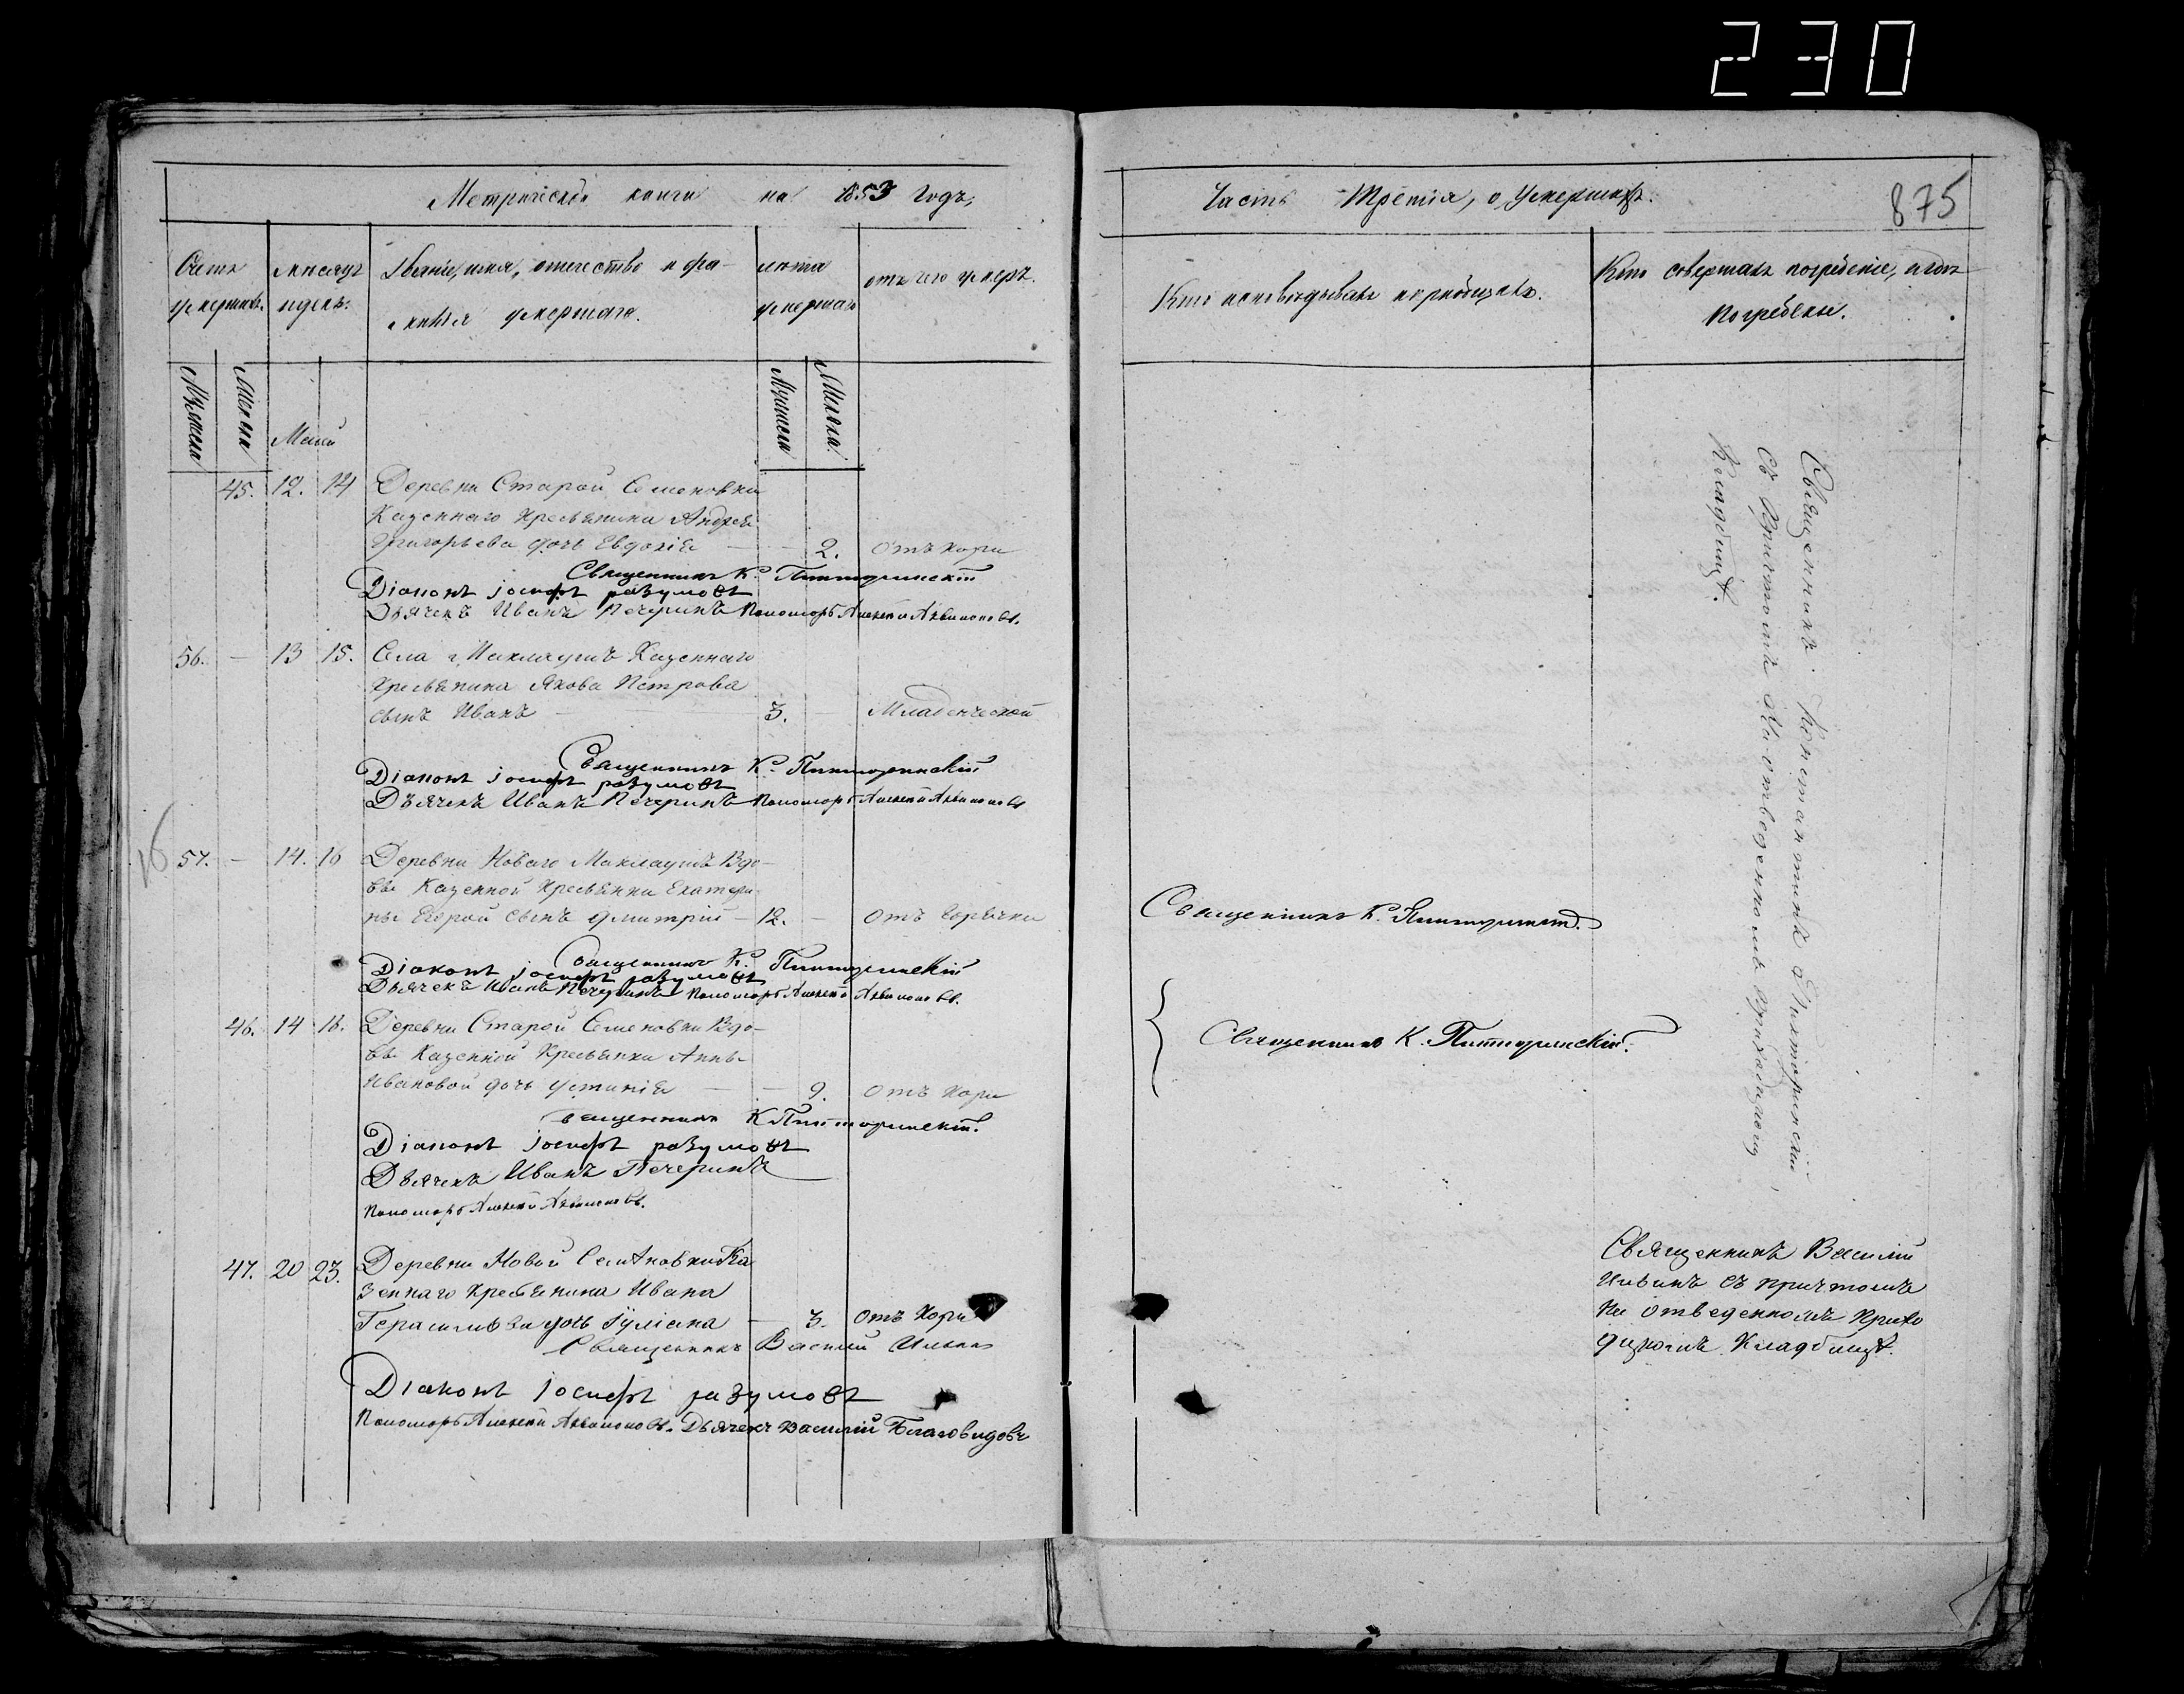 230
Метрической книги на 1853 годъ,
Счетъ умершихъ.
Мѣсяцъ и день.
Званіе, имя, отечество и фа-
милія умершаго.
лѣта умершаго
отъ чего умеръ.
Мужеска
Женска
Май
Мужеска
Женска.
45. 12. 14 Деревни Старой Семеновки
Казеннаго Крестьянина Андрея
Григорьева дочь Евдокія — 2. отъ Кори
Священникъ К. Пикторинскій
Діаконъ Іосифъ разумовъ
Дьячекъ Иванъ Печеринъ Пономарь Алексѣй
56. — 13 15. Села Маклаушъ Казеннаго
Крестьянина Якова Петрова
сынъ Иванъ — 3. Младенческой
Священникъ К. Пикторинскій
Діаконъ Іосифъ разумовъ
Дьячекъ Иванъ Печеринъ Пономарь Алексѣй
16
57. — 14. 16 Деревни Новаго Маклаушъ Вдо-
вы Казенной Крестьянки Екатери-
ны сынъ Дмитрій — 12. — отъ Горячки
Священникъ К. Пикторинскій
Діаконъ Іосифъ разумовъ
Дьячекъ Иванъ Печеринъ Пономарь Алексѣй
46. 14 16. Деревни Старой Семеновки Вдо-
вы Казенной Крестьянки Анны
Ивановой дочь Устинія — 9. отъ Кори
Священникъ К. Пикторинскій.
Діаконъ Іосифъ разумовъ
Дьячекъ Иванъ Печеринъ
Пономарь Алексѣй
47. 20 23. Деревни Новой Семѣновки Ка-
зеннаго Крестьянина Ивана
Герасимова дочь Іуліана — 3. отъ Кори
Священникъ Василій Ильинъ
Діаконъ Іосифъ разумовъ
Пономарь Алексѣй Дьячекъ Василій Благовидовъ
Часть Третія, о Умершихъ.
875
Кто исповѣдывалъ и приобщалъ.
Кто совершалъ погребеніе, и гдѣ
погребены.
Священникъ Константинъ Пикторинскій
Съ Причтомъ На отведенномъ Приходскомъ
Кладбищѣ.
Священникъ К. Пикторинскій.
Священникъ К. Пикторинскій.
Священникъ Василій
Ильинъ съ причтомъ
На отведенномъ Прихо
дскомъ Кладбищѣ.